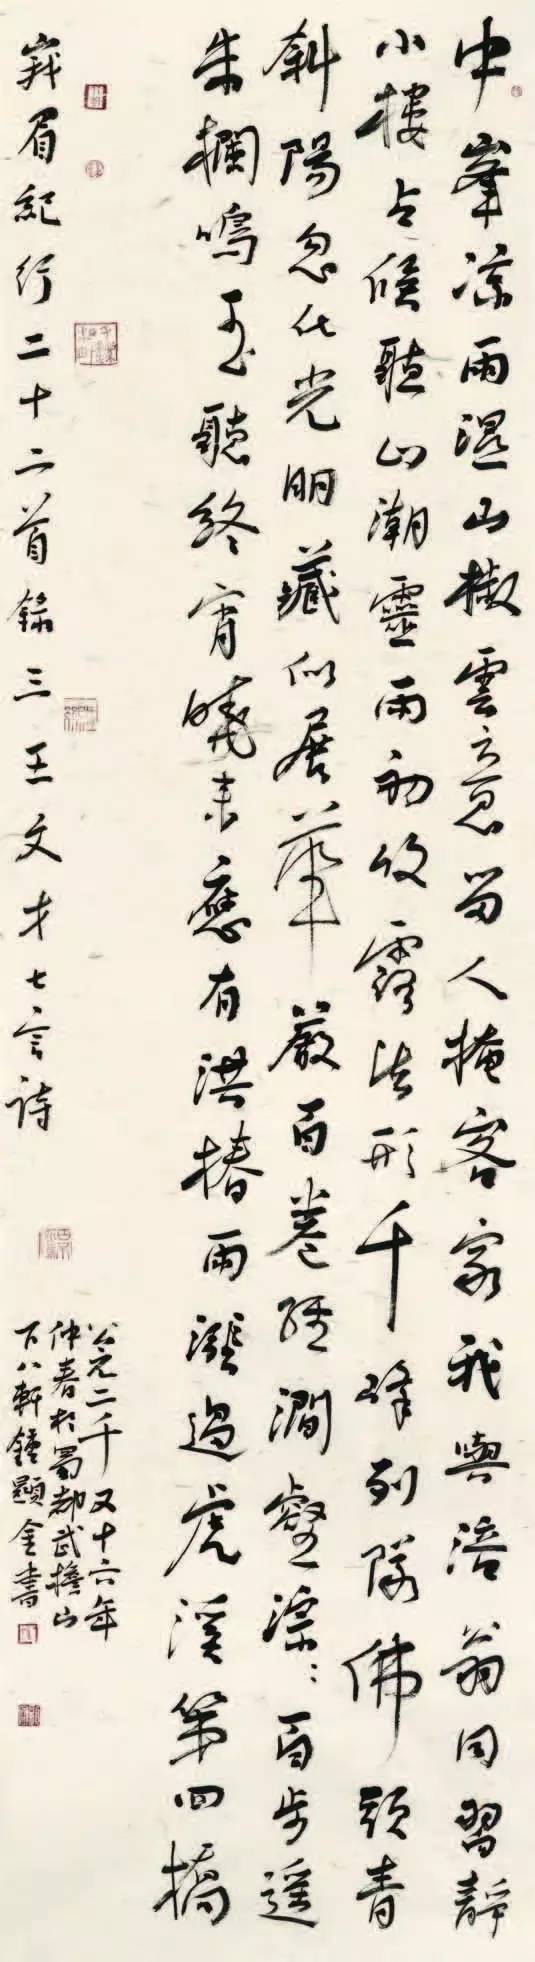 中峯涼雨濕山椒雲意留人掩客寮我與涪翁同習靜
小樓占候聽山潮靈雨初收露法形千峰列隊佛頭青
斜陽忽化光明藏似展華嚴百卷經澗壑深：百步遥
朱欄鳴玉聽終宵曉來應有洪椿雨漲過虎溪第四橋
峩眉紀行二十二首錄三王文才七言詩
公元二千又十六年
仲春於蜀都武擔山
下八軒鍾顯金書